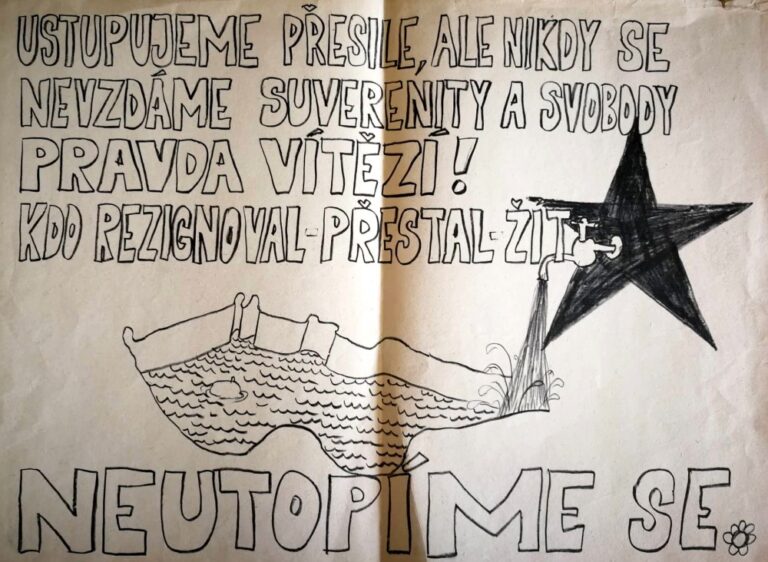 USTUPUJEME PŘESILE, ALE NIKDY SE
NEVZDÁME SUVERENITY A SVOBODY
PRAVDA VÍTĚZÍ!
KDO REZIGNOVAL-PŘESTAL-ŽIT
NEUTOPÍME SE.